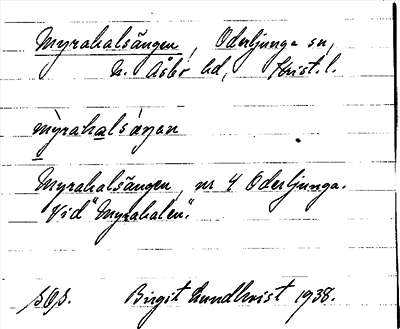 Myrahalsängen, Oderljunga sn,
N. Åsbo hd, Krist. l.
Myrahalsängen, nr 4 Oderljunga.
Vid "Myrahalen".
Birgit Lundkvist 1938.